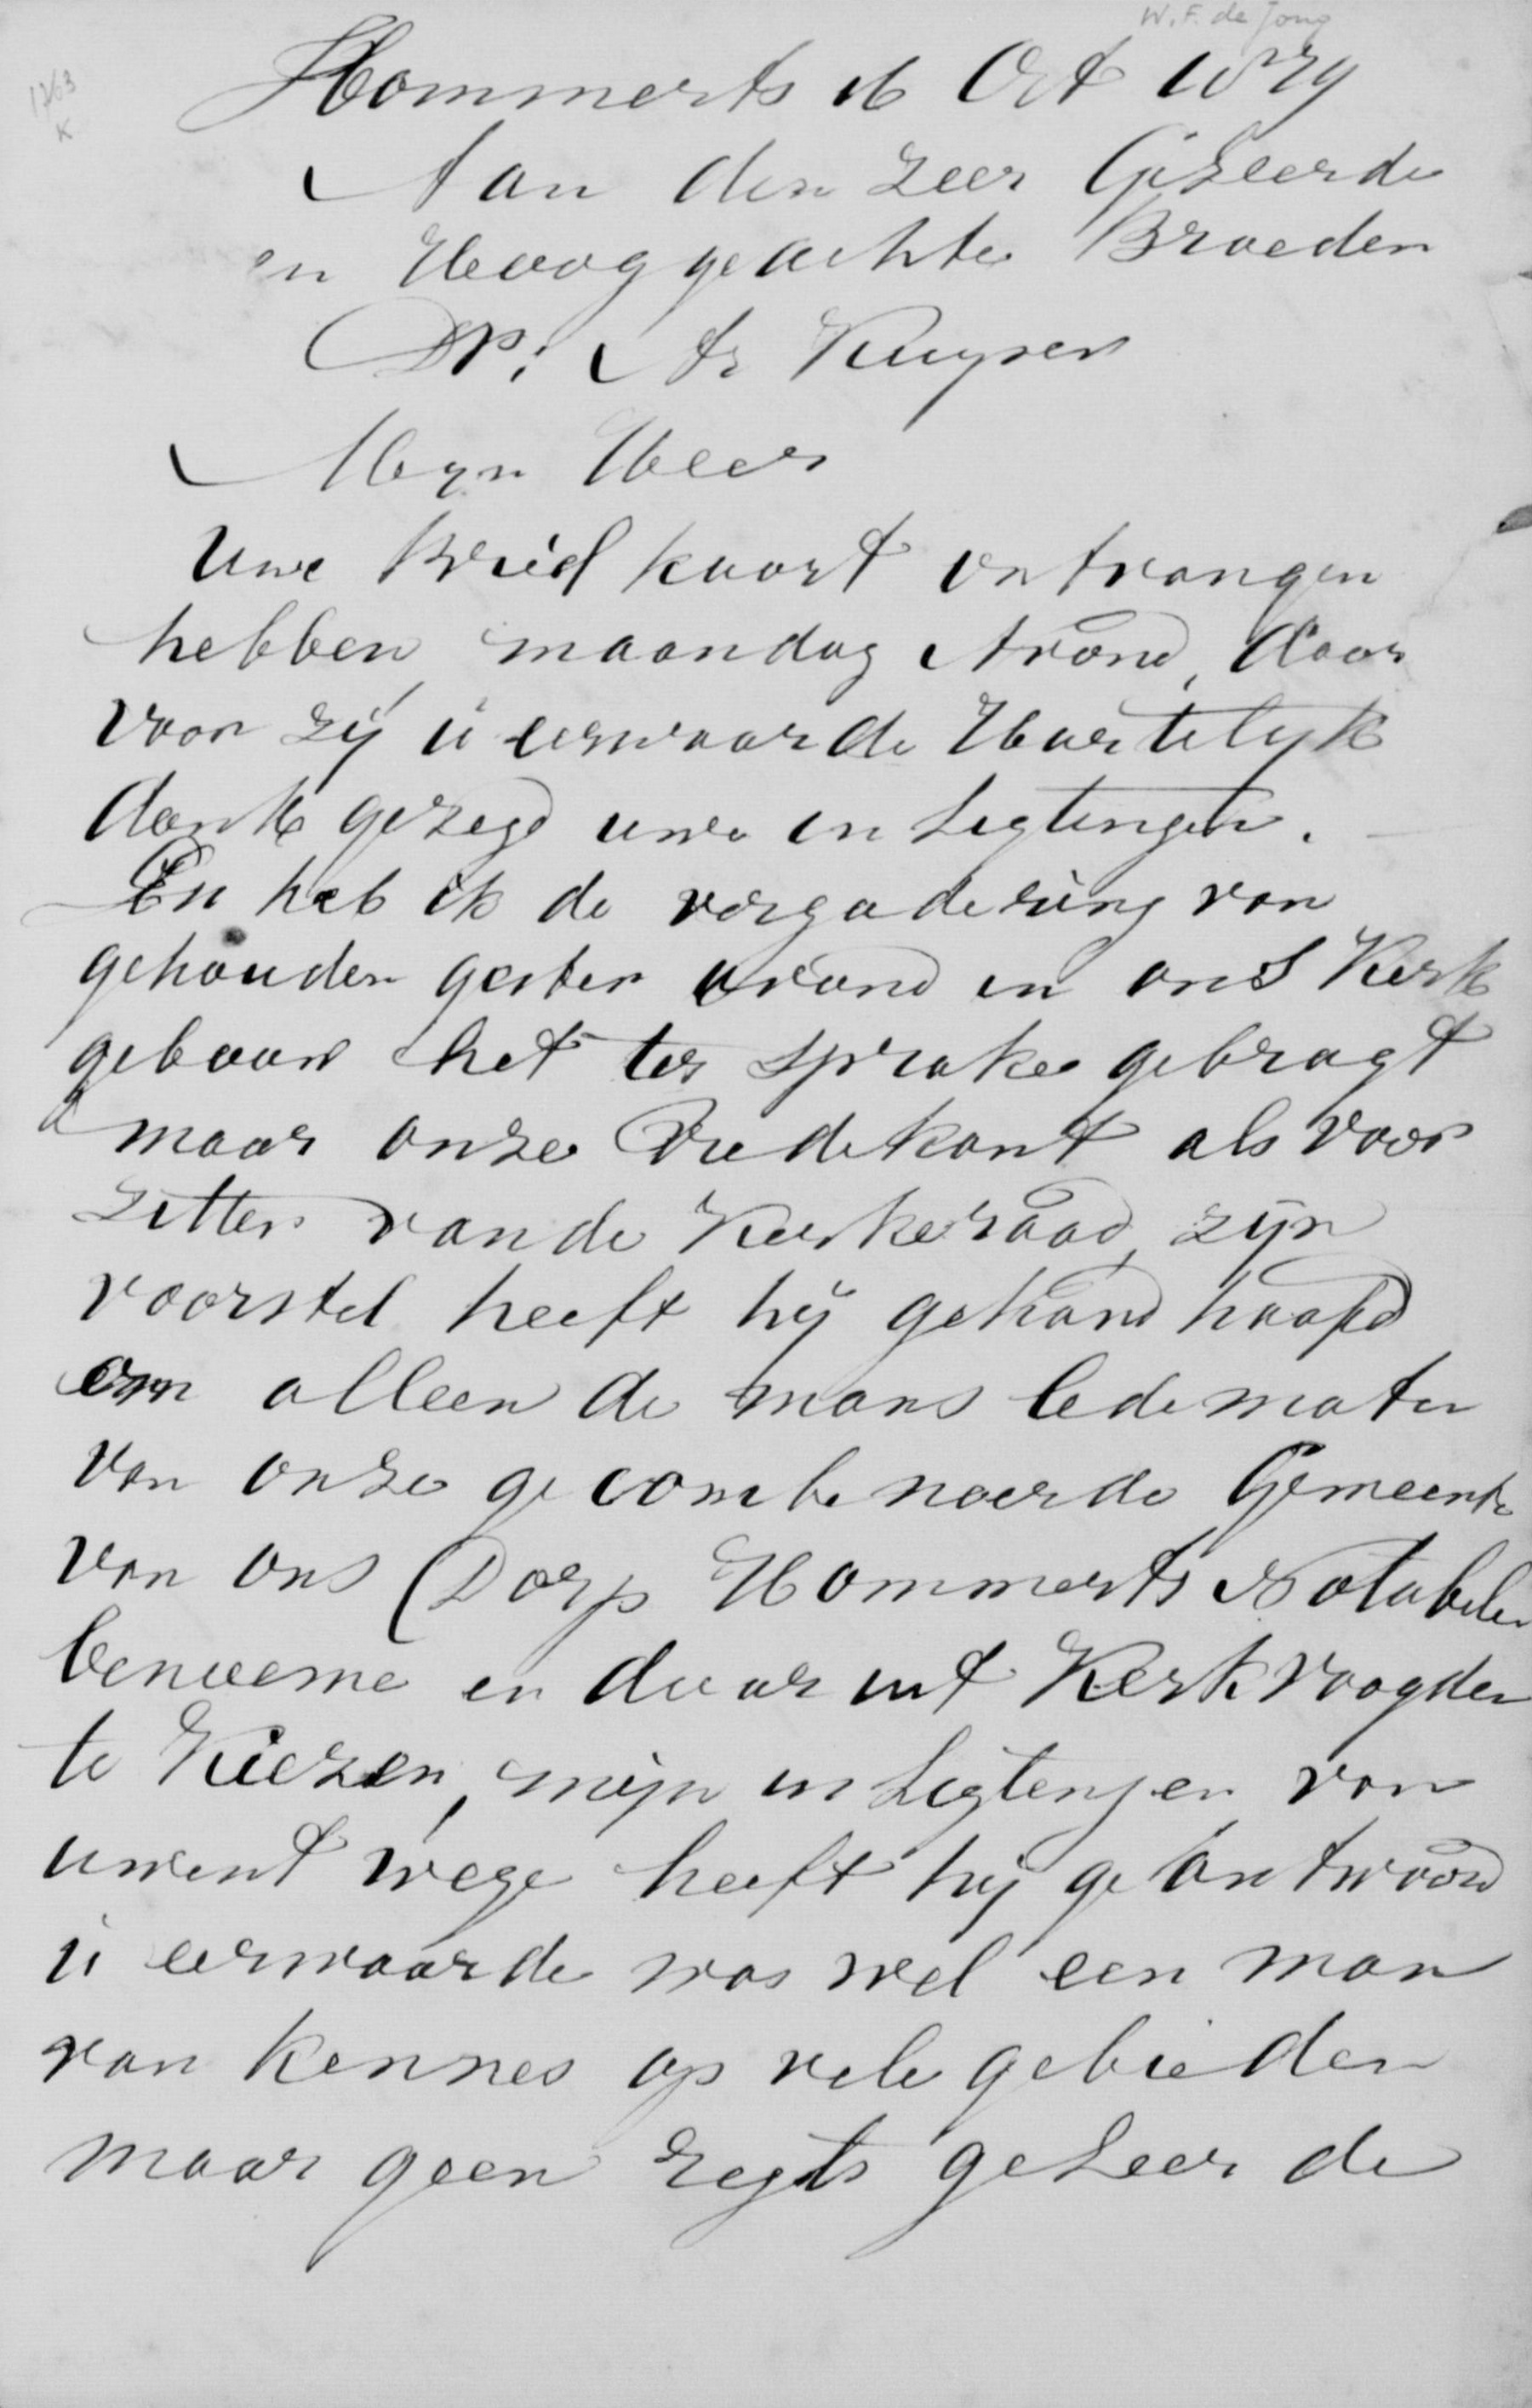 W. F. de Jong
1763
K
Hommerts 16 Oct 1879
Aan den zeer Geleerde
en Hooggeachte Broeder
Dr. A. Kuyper
Mijn Heer
Uwe Brief kaart ontvangen
hebben, maandag Avond, daar
voor zij u eerwaarde Hartelyk
dank gezegd uwe in Ligtingen.
En heb ik de vergadering van
gehouden gester avond in ons Kerk
gebouw het ter sprake gebragt
maar onze Predekant als voor
zitter van de Kerkeraad, zijn
voorstel heeft hij gehand haafd
om alleen de mans ledematen
van onze gecombeneerde Gemeente
van ons Dorp Hommerts Notabelen
benoeme en daar uit Kerkvoogden
te Kiezen, mijn in Ligtengen van
uwent wege heeft hij geantwoord
u eerwaarde was wel een man
van kennes op vele gebieden
maar geen regts geleerde